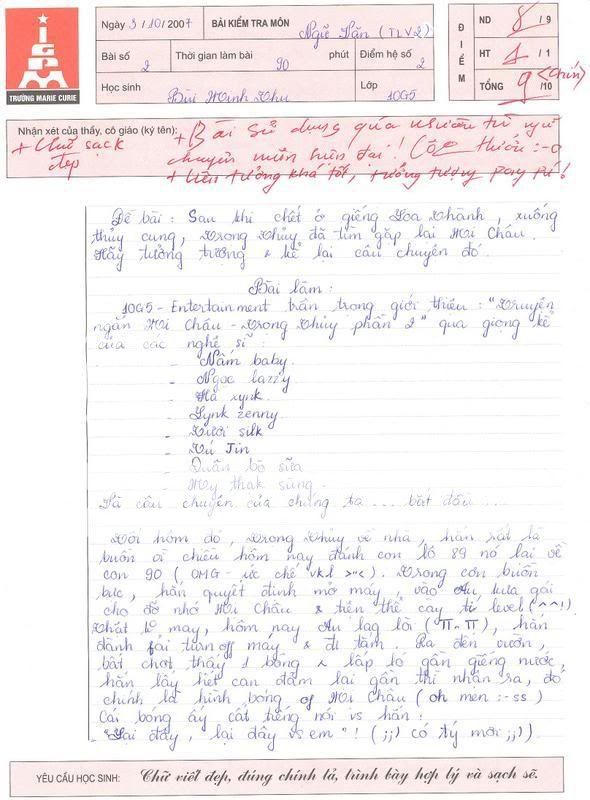 Ngày 3/10/2007
BÀI KIỂM TRA MÔN Ngữ Văn (TLV2)
ĐIỂM
NĐ 8/9
HT 1/1
TỔNG 9 (chín) /10
Bài số 2
Thời gian làm bài 90 phút
Điểm hệ số 2
Học sinh Bùi Minh Thu
Lớp 10G5
TRƯỜNG MARIE CURIE
Nhận xét của thầy, cô giáo (ký tên):
+ Chữ sạch đẹp
+ Bài sử dụng quá nhiều từ ngữ
chuyên môn hiện đại! (Cô thiếu :-o
+ Liên tưởng khá tốt, tưởng tượng pay pú!
Đề bài : Sau khi chết ở giếng Loa Thành, xuống
thủy cung, Trọng Thủy đã tìm gặp lại Mị Châu.
Hãy tưởng tượng & kể lại câu chuyện đó.
Bài làm :
10G5 - Entertainment trân trọng giới thiệu : "Truyện
ngắn Mị Châu - Trọng Thủy phần 2" qua giọng kể
của các nghệ sĩ :
- Nấm baby.
- Ngọc lazzy
- Hà xynk.
- Lynk zenny
- Tười silk
- Tú Jin
- Quân bò sữa
- My thak sùng.
Và câu chuyện của chúng ta ... bắt đầu ...
Tối hôm đó, Trọng Thủy về nhà, hắn rất là
buồn vì chiều hôm nay đánh con lô 89 nó lại về
con 90 (OMG - ức chế vkl >"<). Trong cơn buồn
bực, hắn quyết định mở máy, vào Au, lừa gái
cho đỡ nhớ Mị Châu & tiện thể cày tí level (^^!).
Nhát lề may, hôm nay Au lag lòi (π.π), hắn
đành fải turn off máy & đi tắm. Ra đến vườn,
bất chợt thấy 1 bóng lấp ló gần giếng nước,
hắn lấy hết can đảm lại gần thì nhận ra, đó
chính là hình bóng of Mị Châu (oh men :-ss)
Cái bóng ấy cất tiếng nói vs hắn :
"Lại đây, lại đây vs em"! (;;) có tý mời ;;)).
YÊU CẦU HỌC SINH: Chữ viết đẹp, đúng chính tả, trình bày hợp lý và sạch sẽ.